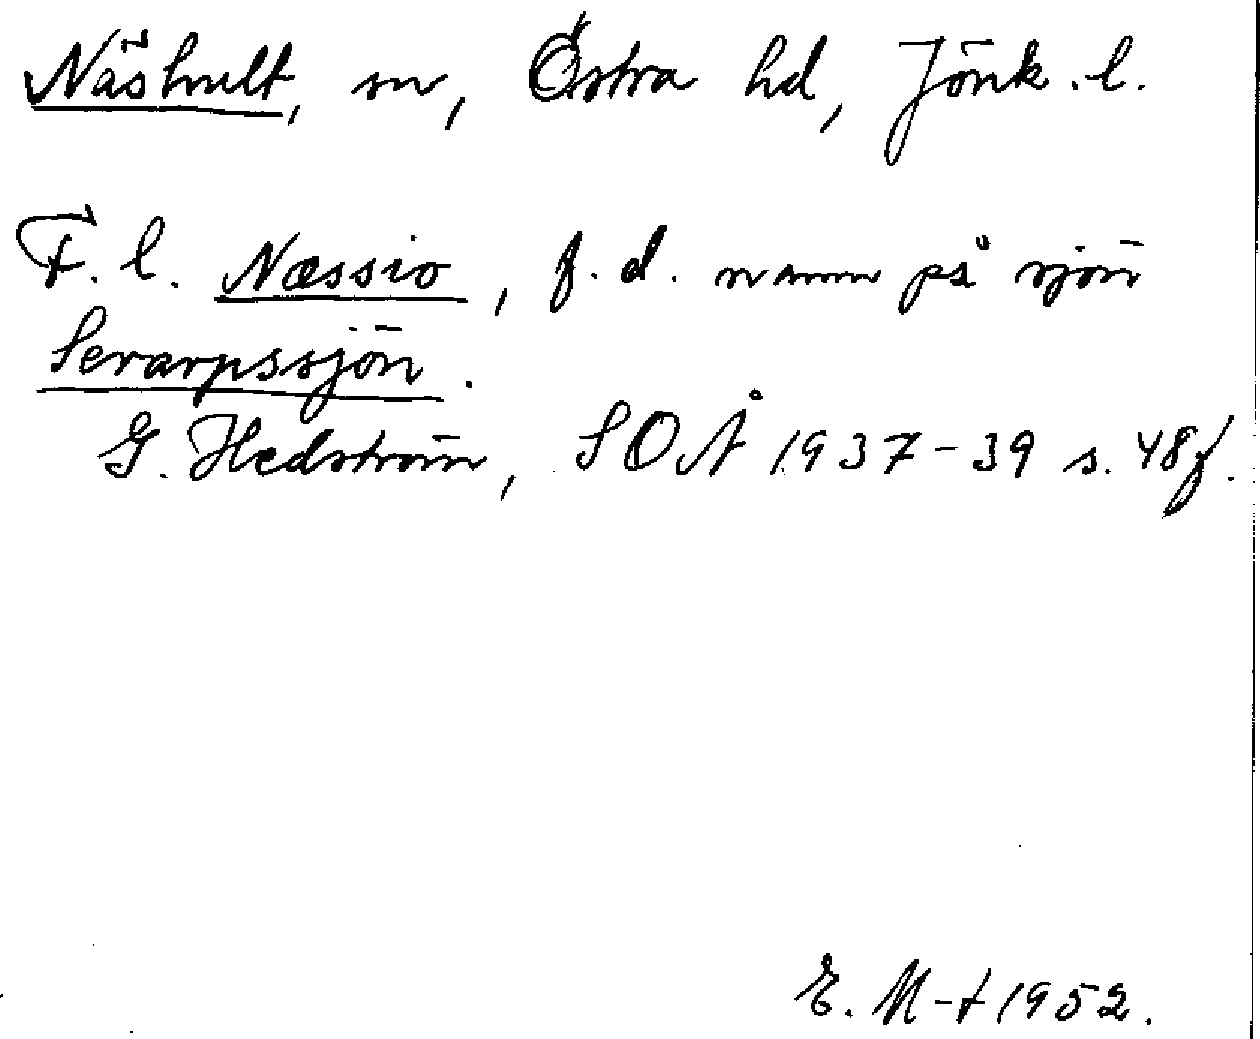 Näshult, sn, Östra hd, Jönk. l.
F. l. Næssio, f. d. namn på sjön
Serarpssjön.
G. Hedström, SOÅ 1937-39 s. 48f.
E. M-t 1952.